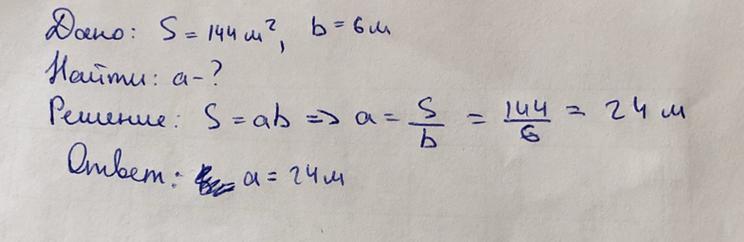 Дано: S = 144 м², b = 6 м
Найти: a - ?
Решение: S = ab => a = S/b = 144/6 = 24 м
Ответ: a = 24 м